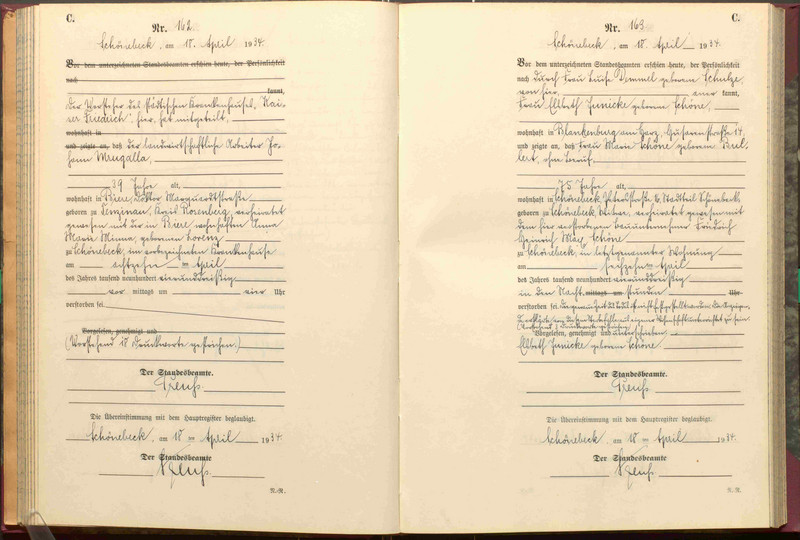 C.
Nr. 162.
Schönebeck, am 18. April 1934.
Vor dem unterzeichneten Standesbeamten erschien heute, der Persönlichkeit
nach
kannt,
Der Vorsteher des städtischen Krankenhauses, "Kai-
ser Friedrich" hier, hat mitgeteilt,
wohnhaft in
und zeigte an, daß der landwirtschaftliche Arbeiter Jo-
hann Mrugalla,
39 Jahre alt,
wohnhaft in Biere, Doktor
geboren zu Kreis Rosenberg, verheiratet
gewesen mit der in Biere wohnhaften Anna
Marie Minna, geborenen Lorenz
zu Schönebeck, im vorbezeichneten Krankenhause
am achtzehn ten April
des Jahres tausend neunhundert vierunddreißig
vor mittags um vier Uhr
verstorben sei
Vorgelesen, genehmigt und
(Vorstehend 18 Druckworte gestrichen.)
Der Standesbeamte.
Die Übereinstimmung mit dem Hauptregister beglaubigt.
Schönebeck, am 18 ten April 1934.
Der Standesbeamte
R.-R.
C.
Nr. 163
Schönebeck, am 18. April 1934.
Vor dem unterzeichneten Standesbeamten erschien heute, der Persönlichkeit
nach durch Frau Luise geborene Schulze,
von hier, aner kannt,
Frau Elsbeth Junicke geborene Schöne,
wohnhaft in Blankenburg am Harz, Husarenstraße 14,
und zeigte an, daß Frau Marie Schöne geborene
ohne Beruf,
75 Jahre alt,
wohnhaft in Schönebeck, 6, Stadtteil Schönebeck,
geboren zu Schönebeck, Witwe, verheiratet gewesen mit
dem hier verstorbenen Bauunternehmer Friedrich
Heinrich Max Schöne
zu Schönebeck, in letztgenannter Wohnung
am sechzehn ten April
des Jahres tausend neunhundert vierunddreißig
in den Nacht mittags um stunden Uhr
verstorben sei
Vorgelesen, genehmigt und unterschrieben.
Elsbeth Junicke geborene Schöne.
Der Standesbeamte.
Die Übereinstimmung mit dem Hauptregister beglaubigt.
Schönebeck, am 18 ten April 1934.
Der Standesbeamte
R.-R.